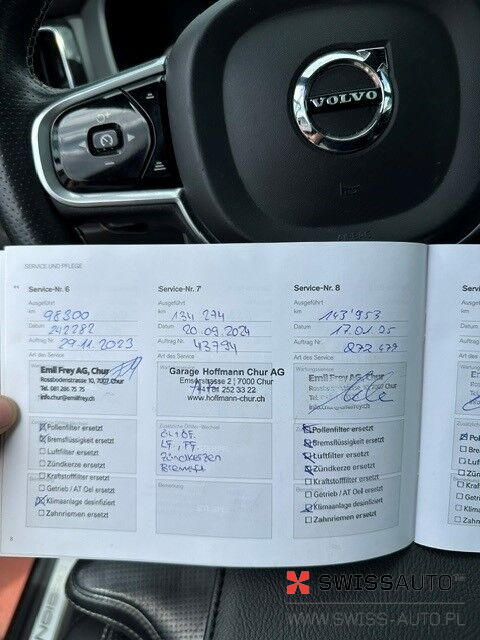 VOLVO
SERVICE UND PFLEGE
Service-Nr. 6
Ausgeführt
km
98300
Datum
242282
Auftrag Nr.
29.11.2023
Art des Service
Emil Frey AG, Chur
Rossbodenstrasse 10, 7007 Chur
Tel. 081 286 75 75
info.chur@emilfrey.ch
Pollenfilter ersetzt
Bremsflüssigkeit ersetzt
Luftfilter ersetzt
Zündkerze ersetzt
Kraftstofffilter ersetzt
Getrieb / AT Oel ersetzt
Klimaanlage desinfiziert
Zahnriemen ersetzt
8
Service-Nr. 7
Ausgeführt
km
134 274
Datum
20.09.2024
Auftrag Nr.
43794
Art des Service
Garage Hoffmann Chur AG
Emserstrasse 2 | 7000 Chur
252 33 22
www.hoffmann-chur.ch
Zusätzliche Ölfilter-Wechsel
ÖL + ÖF.
LF, PF.
Zündkerzen
Bemerkung
Service-Nr. 8
Ausgeführt
km
143'953
Datum
Auftrag Nr.
Art des Service
Emil Frey AG, Chur
Rossbodenstrasse 10, 7007 Chur
Tel.
info.chur@emilfrey.ch
Pollenfilter ersetzt
Bremsflüssigkeit ersetzt
Luftfilter ersetzt
Zündkerze ersetzt
Kraftstofffilter ersetzt
Getrieb / AT Oel ersetzt
Klimaanlage desinfiziert
Zahnriemen ersetzt
Service-N
Ausgeführt
km
Datum
Auftrag Nr.
Art des Serv
SWISSAUTO
WWW.SWISS-AUTO.PL